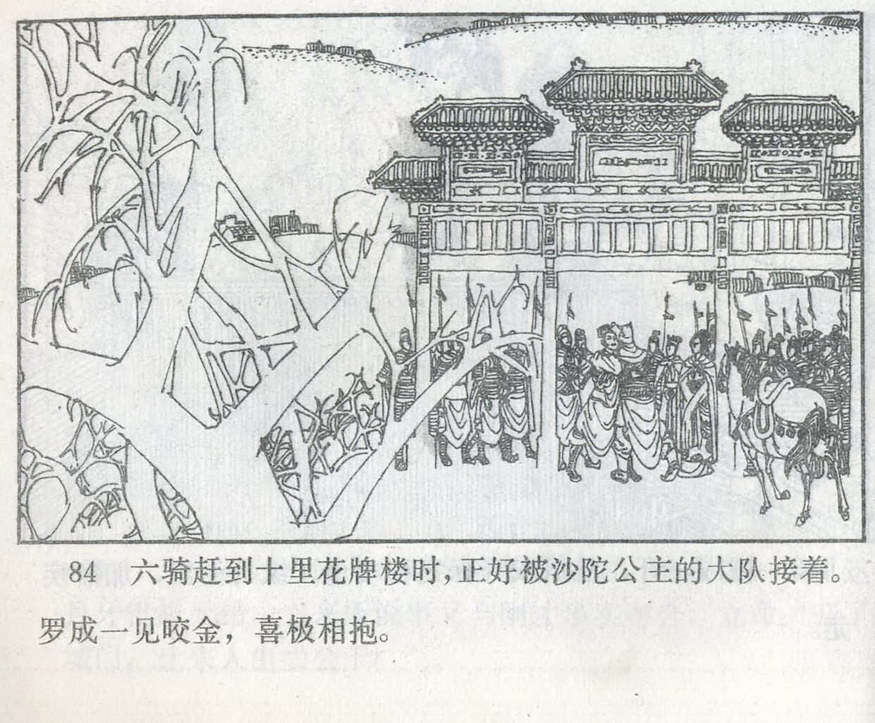 84 六骑赶到十里花牌楼时，正好被沙陀公主的大队接着。
罗成一见咬金，喜极相抱。